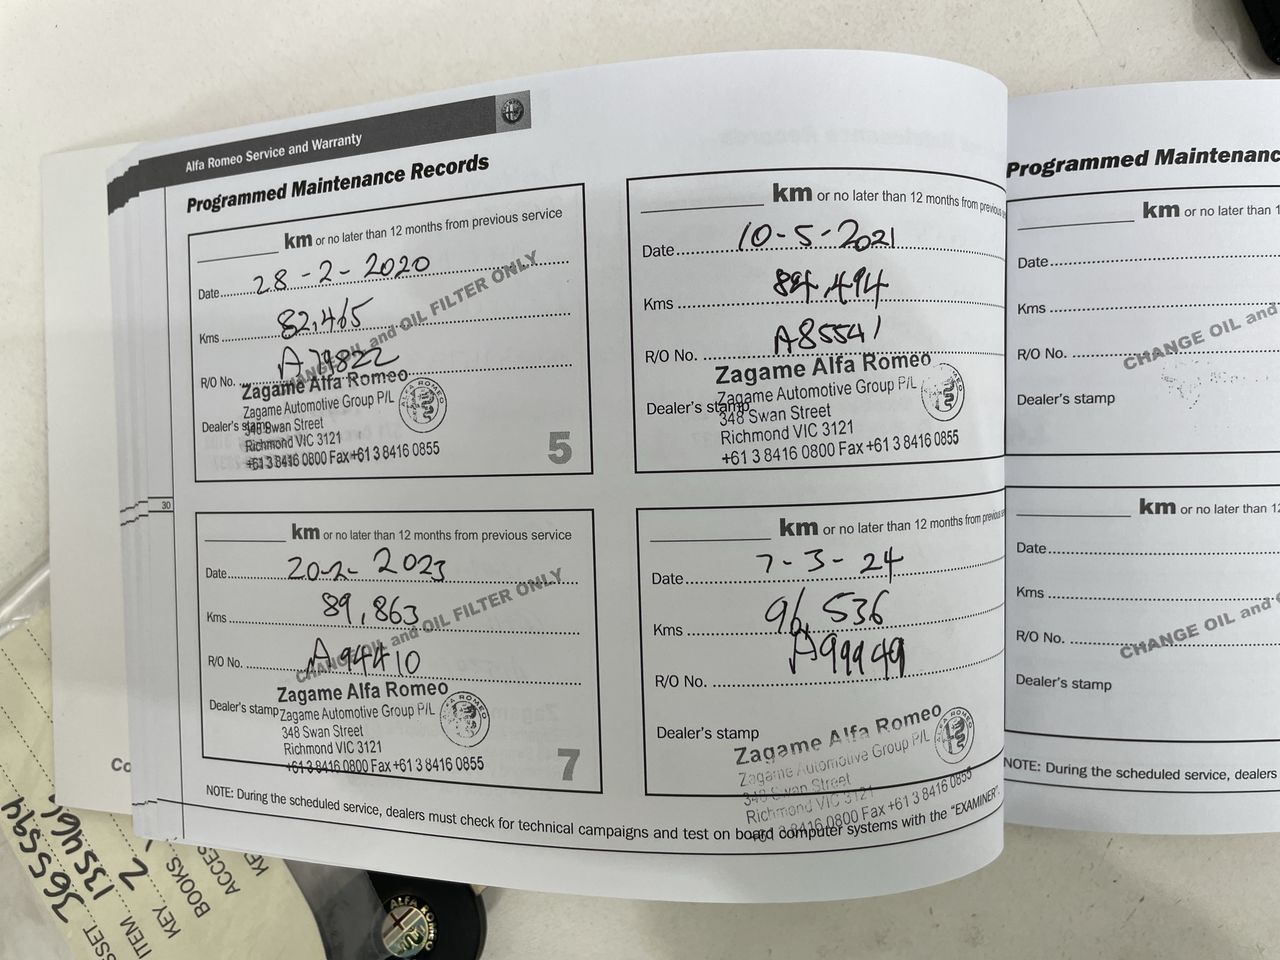 Alfa Romeo Service and Warranty
Programmed Maintenance Records
km or no later than 12 months from previous service
Date 28-2-2020
Kms 82,465
R/O No. A79822
CHANGE OIL and OIL FILTER ONLY
Dealer's stamp
Zagame Alfa Romeo
Zagame Automotive Group P/L
348 Swan Street
Richmond VIC 3121
+61 3 8416 0800 Fax +61 3 8416 0855
ALFA ROMEO
5
km or no later than 12 months from previous
Date 10-5-2021
Kms 84,494
R/O No. A85541
Dealer's stamp
Zagame Alfa Romeo
Zagame Automotive Group P/L
348 Swan Street
Richmond VIC 3121
+61 3 8416 0800 Fax +61 3 8416 0855
30
km or no later than 12 months from previous service
Date 20-2-2023
Kms 89,863
R/O No. A94410
CHANGE OIL and OIL FILTER ONLY
Dealer's stamp
Zagame Alfa Romeo
Zagame Automotive Group P/L
348 Swan Street
Richmond VIC 3121
+61 3 8416 0800 Fax +61 3 8416 0855
ALFA ROMEO
7
km or no later than 12 months from previous
Date 7-3-24
Kms 96,536
R/O No. A99949
Dealer's stamp
Zagame Alfa Romeo
Zagame Automotive Group P/L
348 Swan Street
Richmond VIC 3121
+61 3 8416 0800 Fax +61 3 8416 0855
NOTE: During the scheduled service, dealers must check for technical campaigns and test on board computer systems with the "EXAMINER".
Programmed Maintenanc
km or no later than 1
Date
Kms
R/O No.
CHANGE OIL and
Dealer's stamp
km or no later than 12
Date
Kms
R/O No.
CHANGE OIL and
Dealer's stamp
NOTE: During the scheduled service, dealers
Co
SSET 365594
ITEM 135466
KEY 2
BOOKS
ACCES
KE
ALFA ROMEO